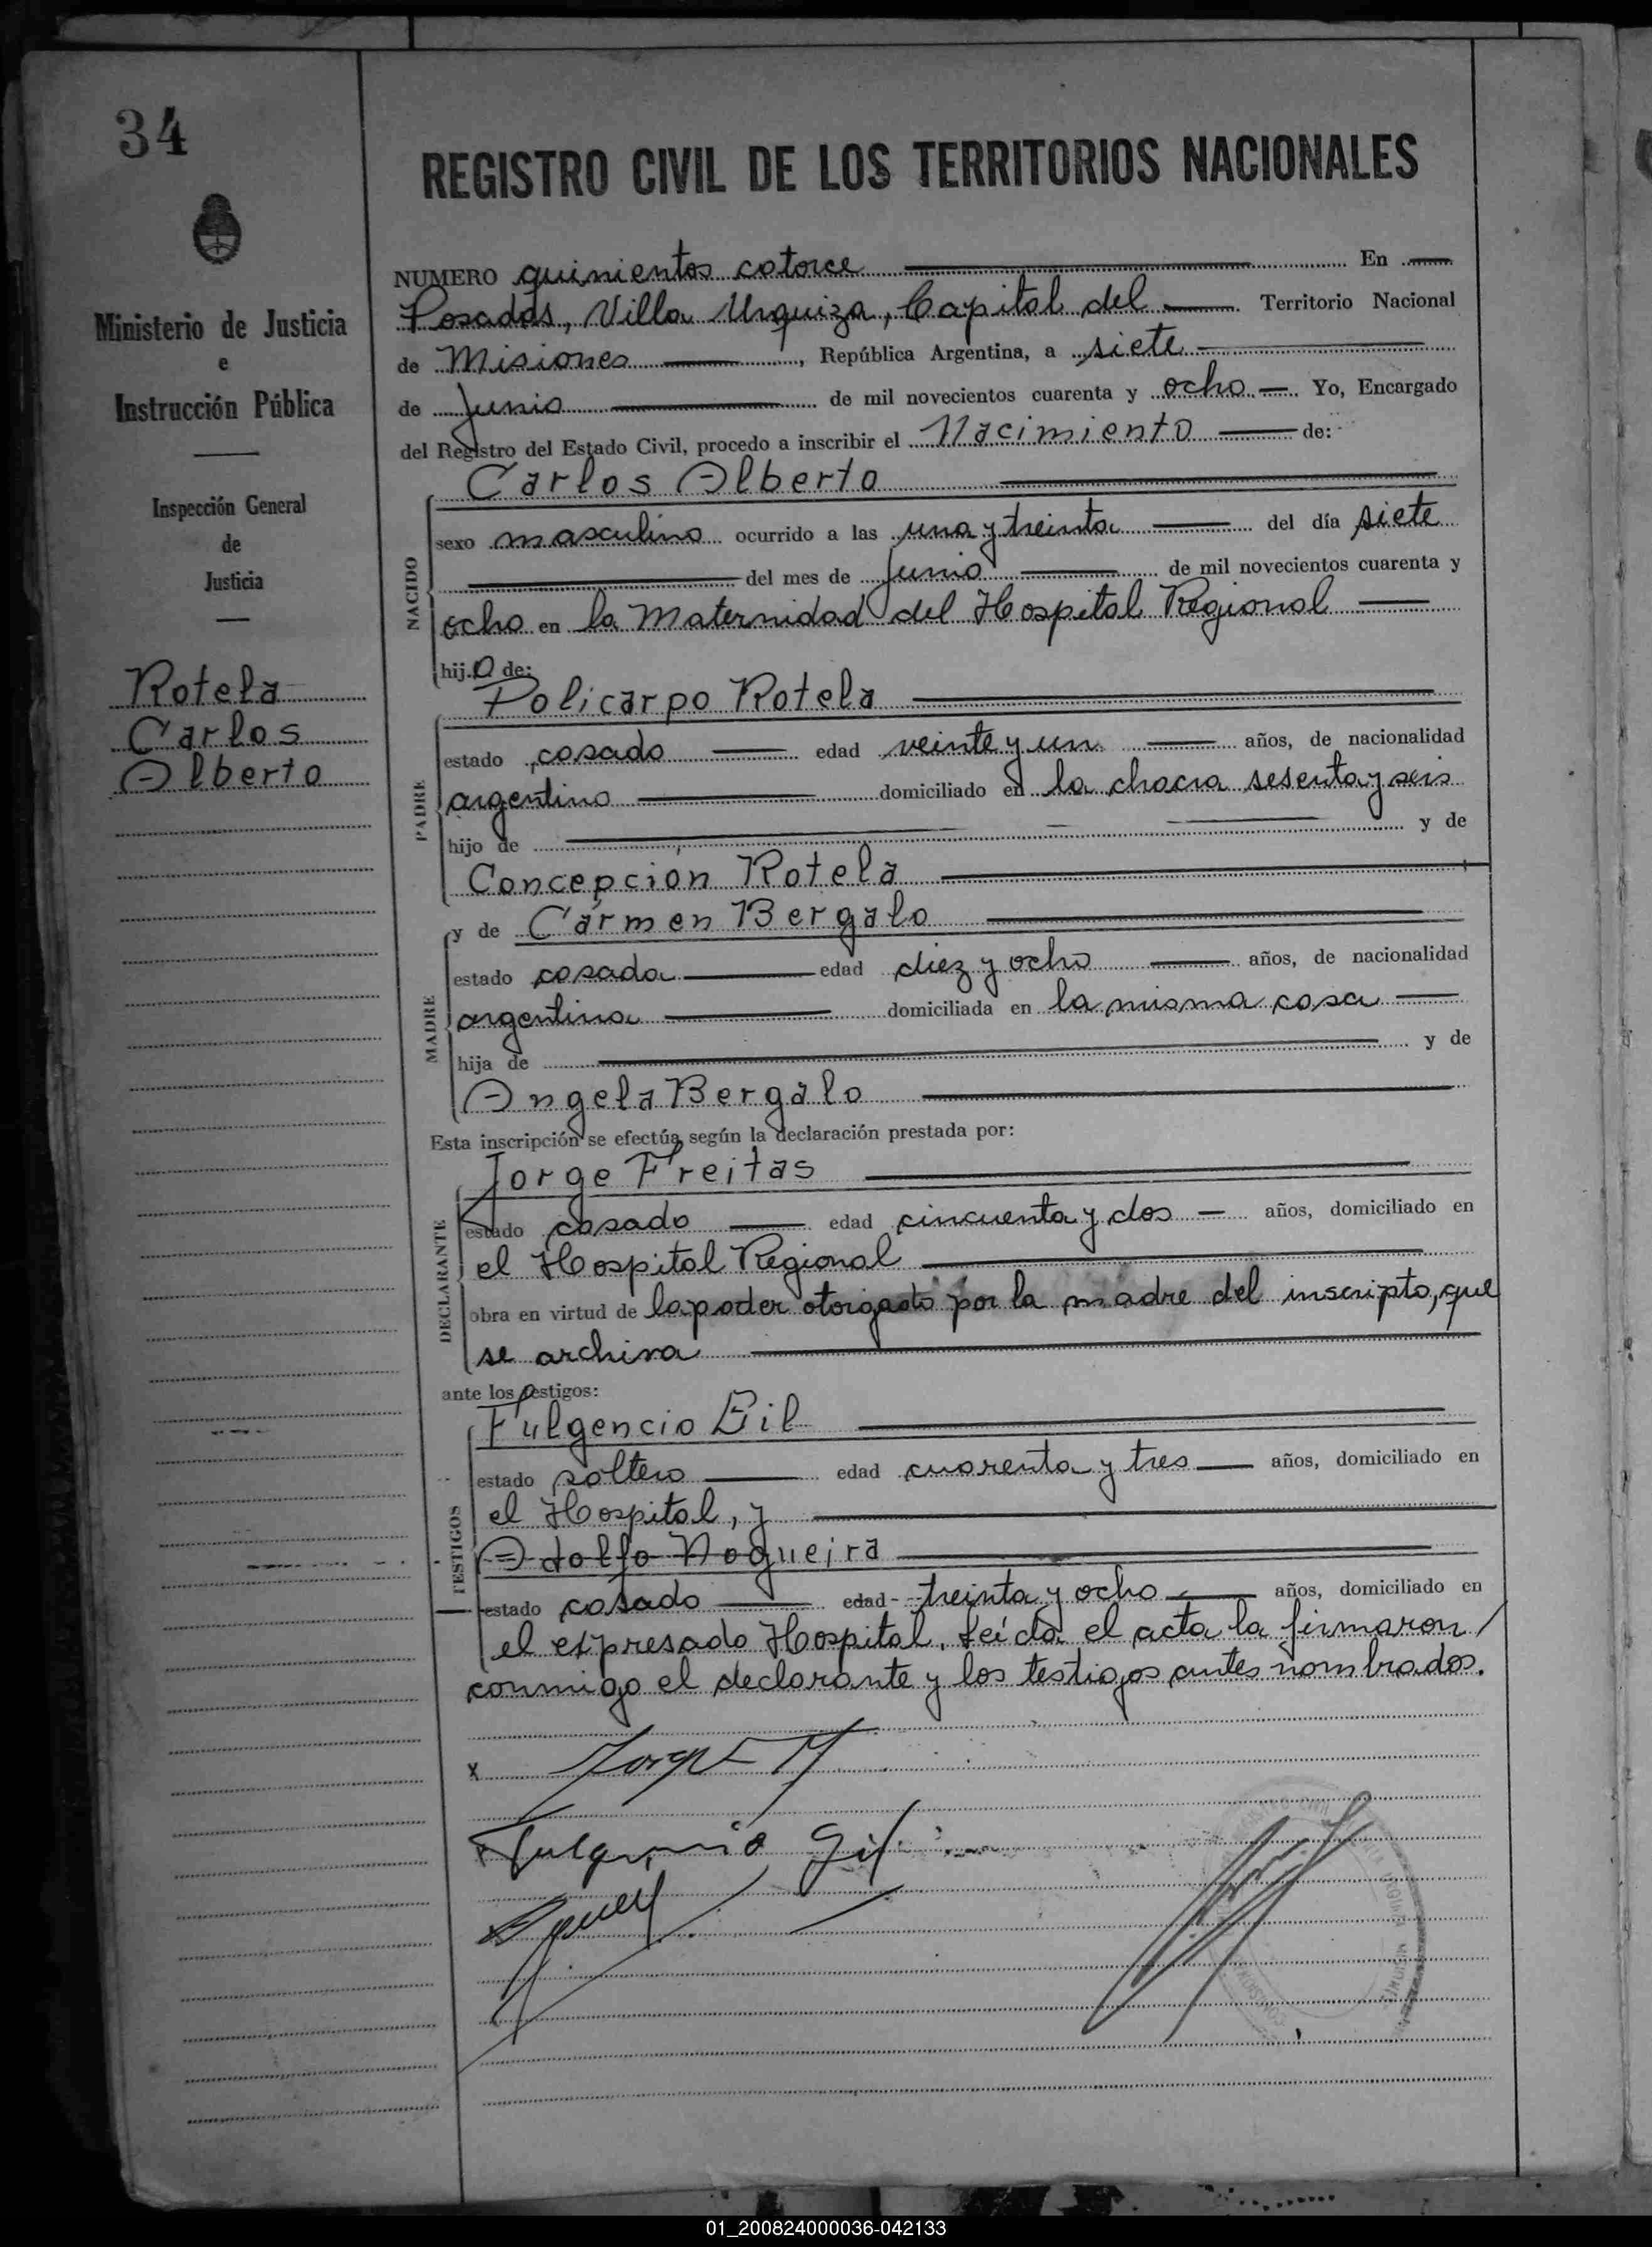 34
REGISTRO CIVIL DE LOS TERRITORIOS NACIONALES
Ministerio de Justicia
e
Instrucción Pública
Inspección General
de
Justicia
Rotela
Carlos
Alberto
NUMERO quinientos catorce En
Posadas, Villa Urquiza, Capital del Territorio Nacional
de Misiones, República Argentina, a siete
de junio de mil novecientos cuarenta y ocho Yo, Encargado
del Registro del Estado Civil, procedo a inscribir el Nacimiento de:
Carlos Alberto
NACIDO
sexo masculino ocurrido a las una y treinta del día siete
del mes de junio de mil novecientos cuarenta y
ocho en la Maternidad del Hospital Regional
hijo de:
Policarpo Rotela
PADRE
estado casado edad veinte y un años, de nacionalidad
argentino domiciliado en la chacra sesenta y seis
hijo de y de
Concepción Rotela
y de Cármen Bergalo
MADRE
estado casada edad diez y ocho años, de nacionalidad
argentina domiciliada en la misma casa
hija de y de
Angela Bergalo
Esta inscripción se efectúa según la declaración prestada por:
Jorge Freitas
DECLARANTE
estado casado edad cincuenta y dos años, domiciliado en
el Hospital Regional
obra en virtud de la poder otorgado por la madre del inscripto, que
se archiva
ante los testigos:
Fulgencio Gil
TESTIGOS
estado soltero edad cuarenta y tres años, domiciliado en
el Hospital, y
Adolfo Nogueira
estado casado edad treinta y ocho años, domiciliado en
el expresado Hospital. Leída el acta la firmaron
conmigo el declarante y los testigos antes nombrados.
x
Fulgencio Gil
01_200824000036-042133